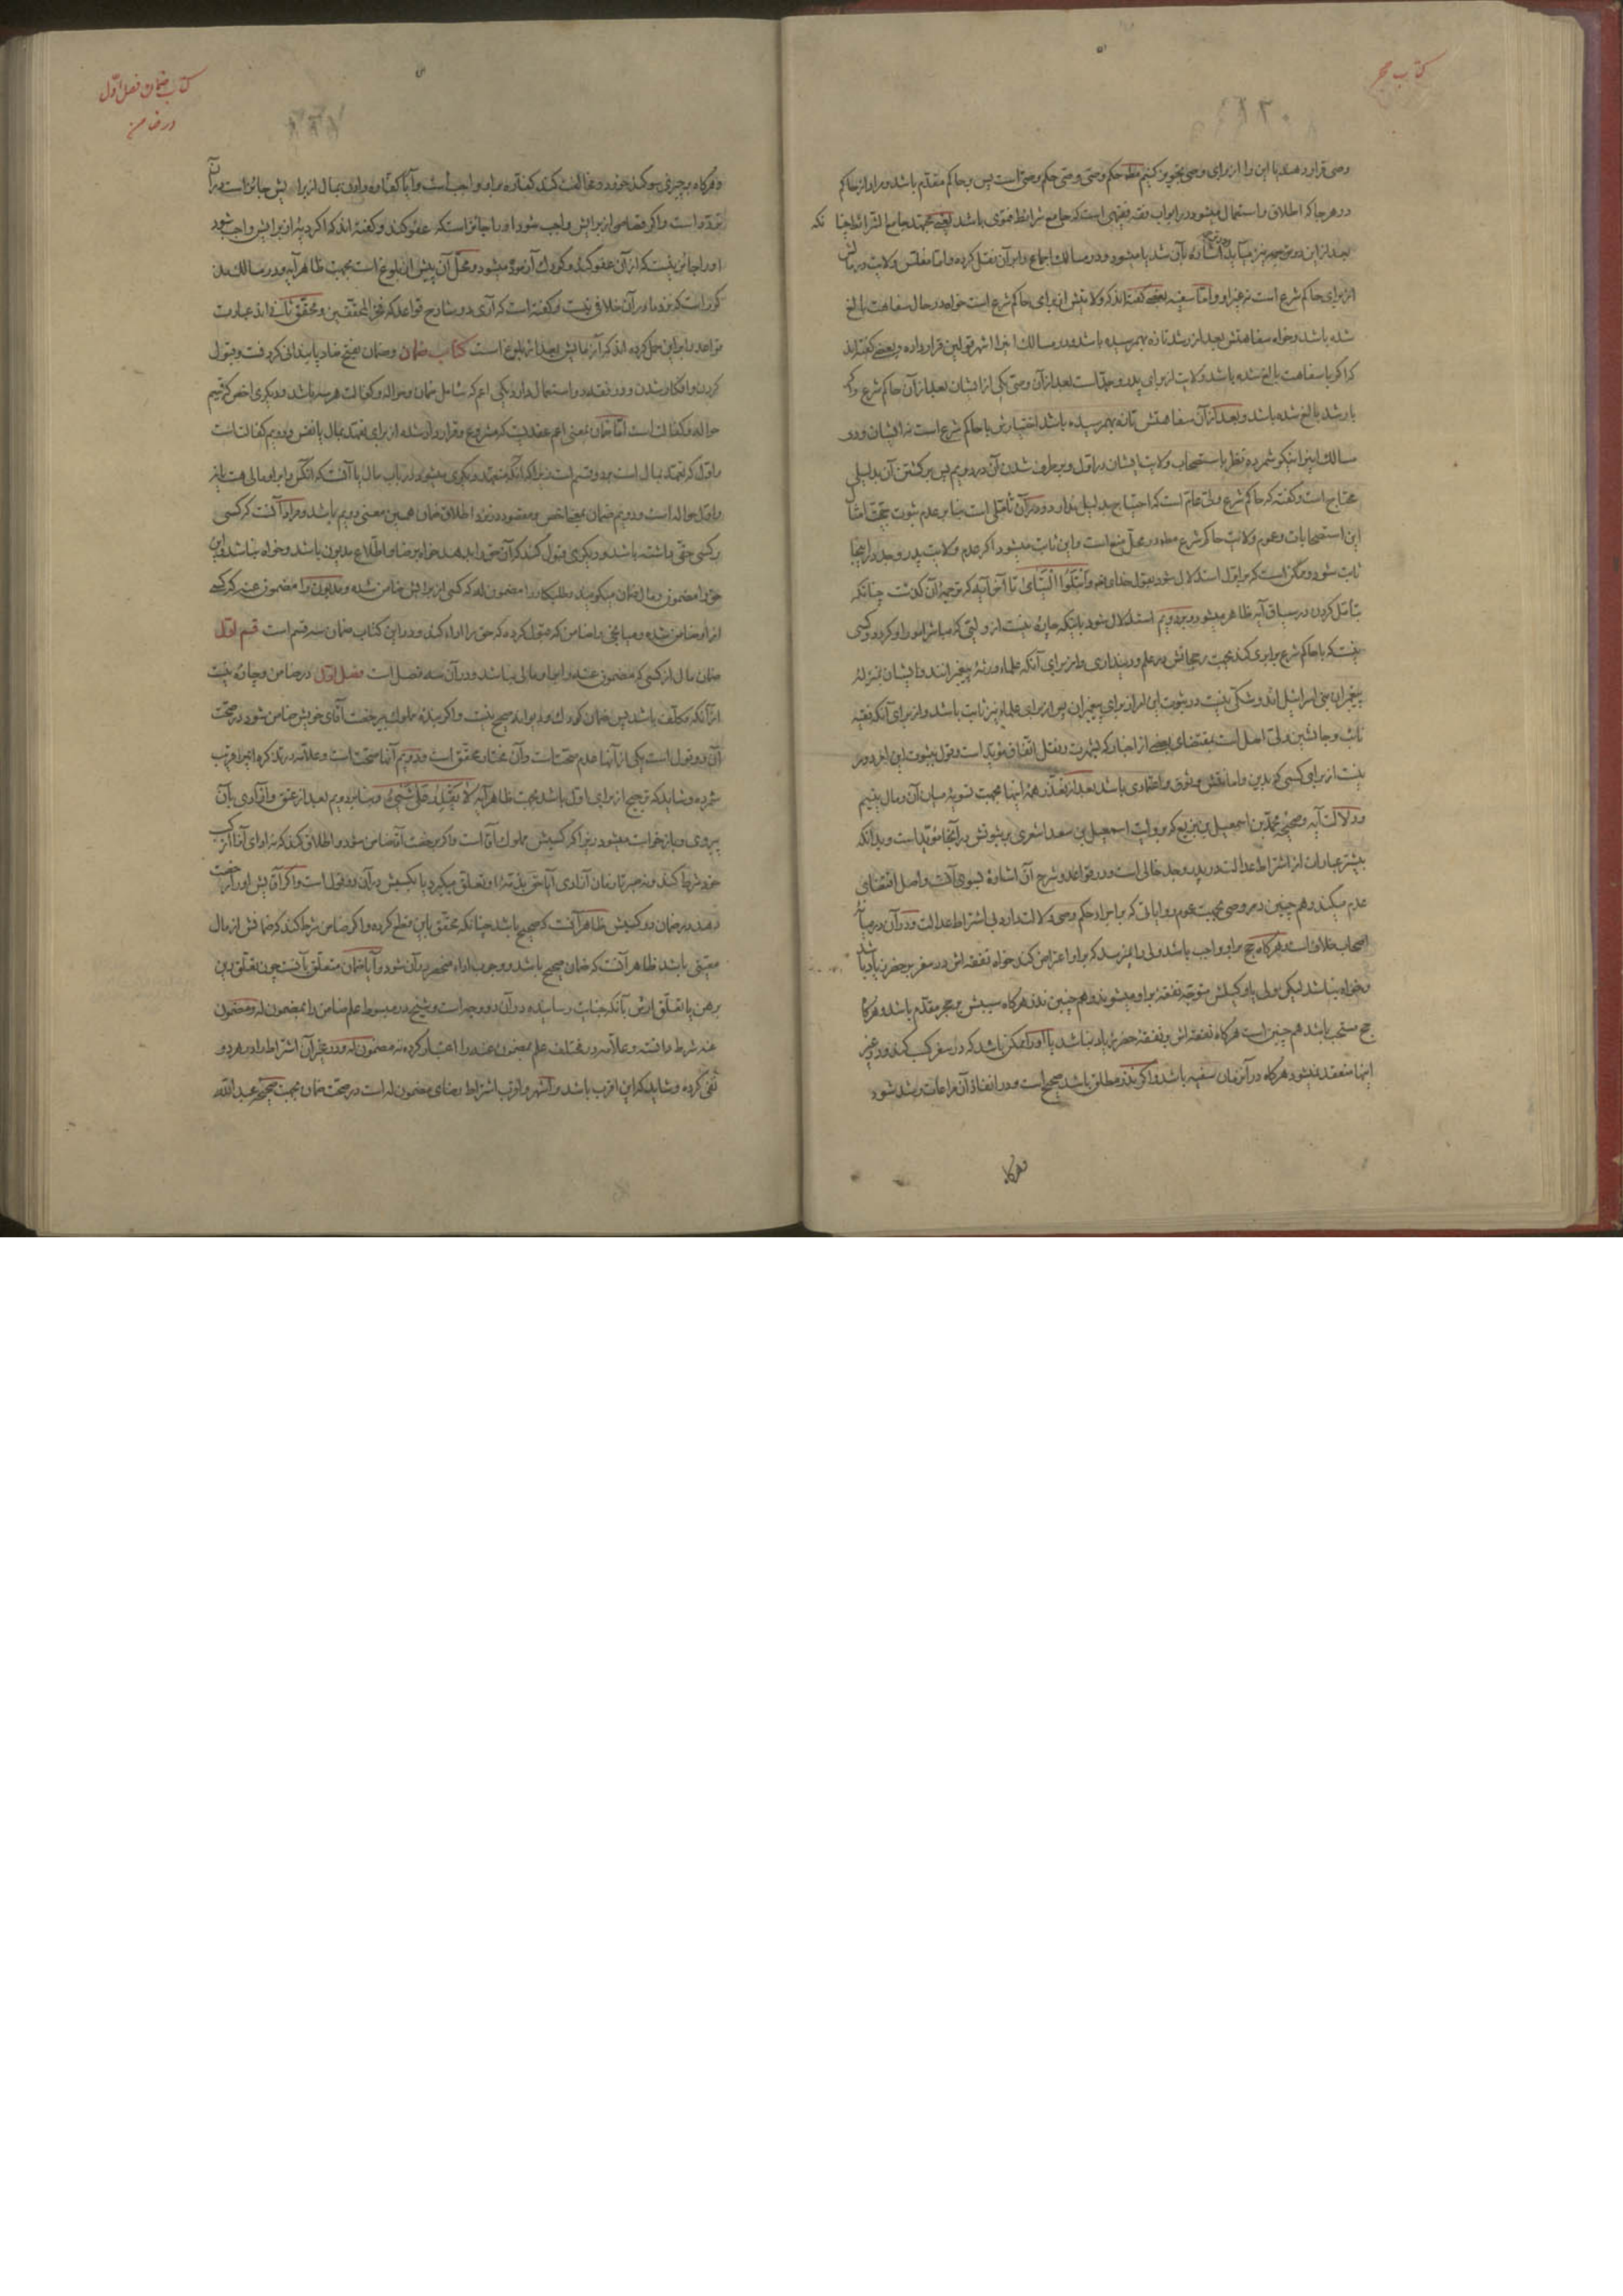 کتاب حجر
وصی قرار دهد یا این را از برای وصی تجویز کنیم حکم وصی وصی حکم وصی است پس بر حاکم مقدم باشد و مراد از حاکم
در هر جا که اطلاق و استعمال میشود در ابواب فقه فقیهی است که جامع شرایط فتوی باشد یعنی مجتهد جامع الشرائط چنا نکه
بعد از این در اشاره بآن شد یا میشود و در مسالک اجماع را بر آن نقل کرده و اما مفلس ولایت در مالش
از برای حاکم شرع است نه غیر او و اما سفیه بعضی گفته اند که ولایتش از برای حاکم شرع است خواه در حال سفاهت بالغ
شده باشد و خواه سفاهتش بعد از رشد تازه بهمرسیده باشد و در مسالک این را اشهر قولین قرار داده و بعضی گفته اند
که اگر با سفاهت بالغ شده باشد ولایت از برای پدر و جد است بعد از آن وصی یکی از ایشان بعد از آن حاکم شرع و اگر
با رشد بالغ شده باشد و بعد از آن سفاهتش تازه بهمرسیده باشد اختیارش با حاکم شرع است نه ایشان و در
مسالک این را نیکو شمرده نظر باستصحاب ولایت ایشان در اول و برطرف شدن آن در دویم پس برگشتن آن بدلیلی
محتاج است و گفته که حاکم شرع ولی عام است که احتیاج بدلیل ندارد و در آن تأملی است بنا بر عدم ثبوت حجیت امثال
این استصحابات و عموم ولایت حاکم شرع مطلقا در محل منع است و این ثابت میشود اگر عدم ولایت پدر و جد در اینجا
ثابت شود و ممکن است که بر اول استدلال شود بقول خداوند وَابْتَلُوا الْيَتَامَى تا آخر آیه که ترجمه آن گذشت چنانکه
بتأمل کردن در سیاق آیه ظاهر میشود و بر دویم استدلال شود باینکه چاره نیست از ولیی که مباشر امور او گردد و کسی
نیست که با حاکم شرع برابری کند بجهت رجحانش در علم و دینداری و از برای آنکه علماء ورثه پیغمبرانند و ایشان بمنزله
پیغمبران بنی اسرائیل اند و شکی نیست در ثبوت این امر از برای پیغمبران پس از برای علماء نیز ثابت باشد و از برای آنکه فقیه
نایب و جانشین ولی اصل است بمقتضای بعضی از اخبار که بشهرت و نقل اتفاق مؤید است و قول بثبوت این امر دور
نیست از برای کسی که بدین و امانتش وثوق و اعتمادی باشد بعد از تعذر همه اینها بجهت تسویه میان آن و مال یتیم
و دلالت آیه و صحیحه محمد بن اسمعیل بن بزیع که بروایت اسمعیل بن سعد اشعری بر ثبوتش در آنجا مؤید است و بدانکه
بیشتر عبارات از اشتراط عدالت در پدر و جد خالی است و در قواعد و شرح آن اشاره بسوی آنست و اصل اقتضای
عدم میکند و هم چنین در وصی بجهت عموم روایاتی که بر امضاء حکم وصی دلالت دارد بی اشتراط عدالت و در آن در میان
اصحاب خلاف است و هرگاه حج بر او واجب باشد ولی را نمیرسد که بر او اعتراض کند خواه نفقه اش در سفر بر حضر زیاد باشد
و خواه نباشد لیکن ولی یا وکیلش متوجه نفقه بر او میشوند و هم چنین نذر هرگاه سببش بر حجر مقدم باشد و هرگاه
حج مستحب باشد هم چنین است هرگاه نفقه اش بر نفقه حضر زیاد نباشد یا او را ممکن باشد که در سفر کسب کند و در غیر
اینها منعقد نمیشود هرگاه در آنزمان سفیه باشد و اگر نذر مطلق باشد صحیح است و در انفاذ آن مراعات رشد شود
و هرگاه
کتاب ضمان فصل اول
در ضامن
و هرگاه بر چیزی سوگند خورد و مخالفت کند کفاره بر او واجب است و آیا کفاره دادن بمال از برایش جایز است در آن
تردد است و اگر قصاصی از برایش واجب شود او را جائز است که عفو کند و گفته اند که اگر دیه از برایش واجب شود
او را جائز نیست که از آن عفو کند و کودک آزموده میشود و محل آن پیش از بلوغ است بجهت ظاهر آیه و در مسالک مذ
کور است که نزد ما در آن خلافی نیست و گفته است که آری دو شارح قواعد که فخر المحققین و محقق ثانی اند عبارت
قواعد را بر این حمل کرده اند که آزمایش بعد از بلوغ است کتاب ضمان و ضمان بفتح ضاد پایندانی کردنست و قبول
کردن و افکار شدن و در فقه دو استعمال دارد یکی اعم که شامل ضمان و حواله و کفالت هر سه باشد و دیگری اخص که قسیم
حواله و کفالت است اما ضمان بمعنی اعم عقدیست که مشروع و قرار داد شده از برای تعهد بمال یا نفس و دویم کفالت است
و اول که تعهد بمال است بر دو قسم است زیرا که آنکه متعهد دیگری میشود در باب مال یا آنست که آنکس را بر او مالی هست یا نه
و اول حواله است و دویم ضمان بمعنی اخص و مقصود در نزد اطلاق ضمان همین معنی دویم باشد و مراد آنست که کسی
بر کسی حقی داشته باشد و دیگری قبول کند که آن حق را بدهد خواه برضا و اطلاع مدیون باشد و خواه نباشد و این
حق را مضمون و مال ضمان میگویند و طلبکار را مضمون له که کسی از برایش ضامن شده و مدیون را مضمون عنه که کسی
از او ضامن شده و میانجی را ضامن که قبول کرده که حق را اداء کند و در این کتاب ضمان سه قسم است قسم اول
ضمان مال از کسی که مضمون عنه را بر او مالی نباشد و در آن سه فصل است فصل اول در ضامن و چاره نیست
از آنکه مکلف باشد پس ضمان کودک و دیوانه صحیح نیست و اگر بنده مملوک بیرخصت آقای خویش ضامن شود در صحت
آن دو قول است یکی از آنها عدم صحت است و آن مختار محقق است و دویم آنها صحت است و علامه در تذکره این را قریب
شمرده و شاید که ترجیح از برای اول باشد بجهت ظاهر آیه لا يَقْدِرُ عَلَى شَيْءٍ و بنا بر دویم بعد از عتق و آزادی بآن
پیروی و باز خواست میشود زیرا که کسبش مملوک آقا است و اگر برخصت آقا ضامن شود و اطلاق کند که نه ادای آنرا از کسب
خود شرط کند و نه صبر تا زمان آزادی آیا حق بذمه او تعلق میگیرد یا بکسبش در آن دو قول است و اگر آقایش او را رخصت
دهد در ضمان در کسبش ظاهر آنست که صحیح باشد چنانکه محقق باین قطع کرده و اگر ضامن شرط کند که ضمانش از مال
معینی باشد ظاهر آنست که ضمان صحیح باشد و وجوب اداء منحصر در آن شود و آیا ضمان متعلق بآنست چون تعلق دین
برهن یا تعلق ارش بآنکه جنایت رسانیده در آن دو وجه است و شیخ در مبسوط علم ضامن را بمضمون له و مضمون
عنه شرط دانسته و علامه در مختلف علم بمضمون عنه را اعتبار کرده نه مضمون له و در غیر آن اشتراط را در هر دو
نفی کرده و شاید که این اقرب باشد و اشهر و اقرب اشتراط رضای مضمون له است در صحت ضمان بجهت صحیحه عبد الله